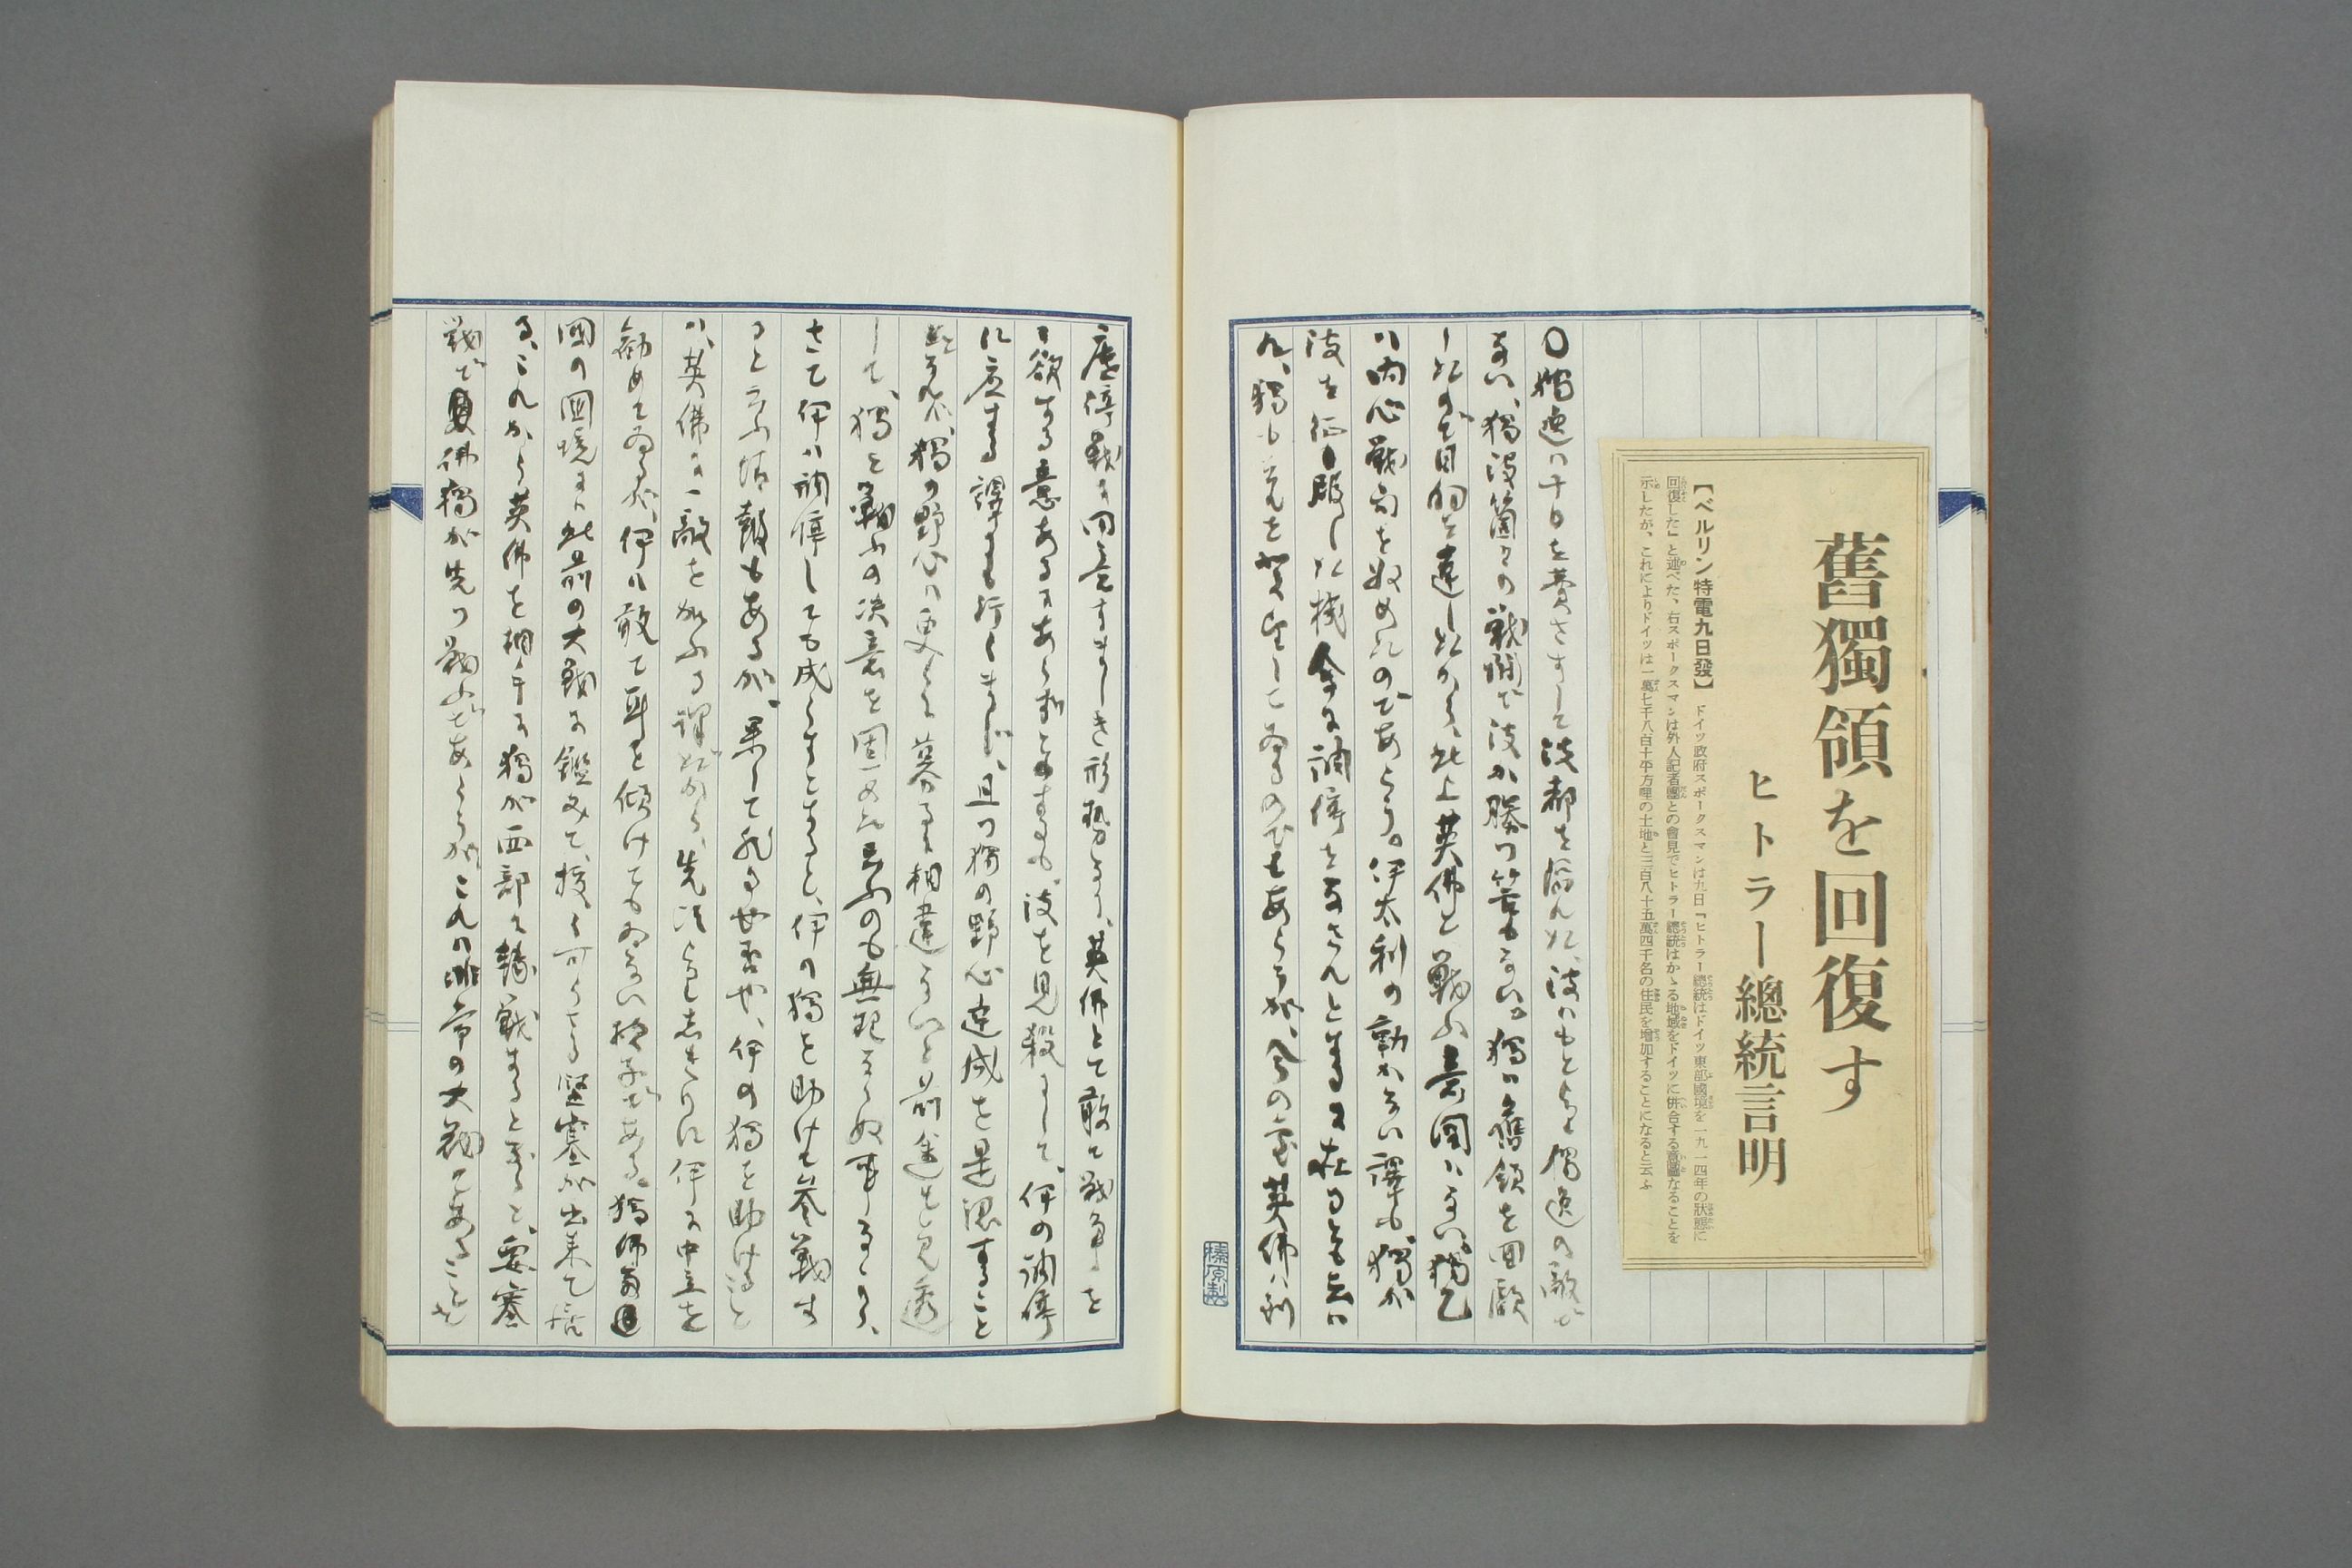 舊獨領を回復す
ヒトラー總統言明
【ベルリン特電九日發】ドイツ政府スポークスマンは九日『ヒトラー總統はドイツ東部國境を一九一四年の狀態に
回復した』と述べた、右スポークスマンは外人記者團との會見でヒトラー總統はかゝる地域をドイツに併合する意圖なることを
示したが、これによりドイツは一萬七千八百十平方哩の土地と三百八十五萬四千名の住民を增加することになると云ふ
〇獨逸ハ十日を費さずして波都を陷れた、波ハもと〳〵獨逸の敵で
ない、獨波箇々の戰鬪で波が勝つ筈もない。獨ハ舊領を回復
し たので目的を達したから、此上英佛と戰ふ意圖ハない。獨乙
ハ内心戰局を收めたのであらう。伊太利の動かない譯も、獨が
波を征服した機會に調停をなさんとするに在るとも云は
れ、獨も それを 希望してゐるのでもあらうが、今の處英佛ハ到
底停戰に同意すまじき形勢なり、英佛とて敢て戰爭を
欲する意あるにあらずとするも、波を見殺にして、伊の調停
に應ずる譯にも行くまじ、且つ獨の野心達成を是認すること
になれバ、獨の野心ハ更らに募るに相違ないと前途を見透
して、獨と戰ふの決意を固めたと云ふのも無理ならぬ事である、
さて伊ハ調停しても成らずとすると、伊の獨を助けて參戰す
ると云ふ情報もあるが、果して然る也否や、伊の獨を助けると
ハ、英佛に一敵を加ふる譯だから、先頃 伊に中立を
勸めてゐるが、伊ハ敢て耳を傾けてもゐない樣子である。獨佛兩
國の國境にハ此前の大戰に鑑みて、拔く可らざる堅塞が出來て居
る、これから英佛を相手に獨が西部に轉戰すると、要塞
戰で 佛獨が先つ戰ふであらうが、これハ非常の大戰であることを
榛原製